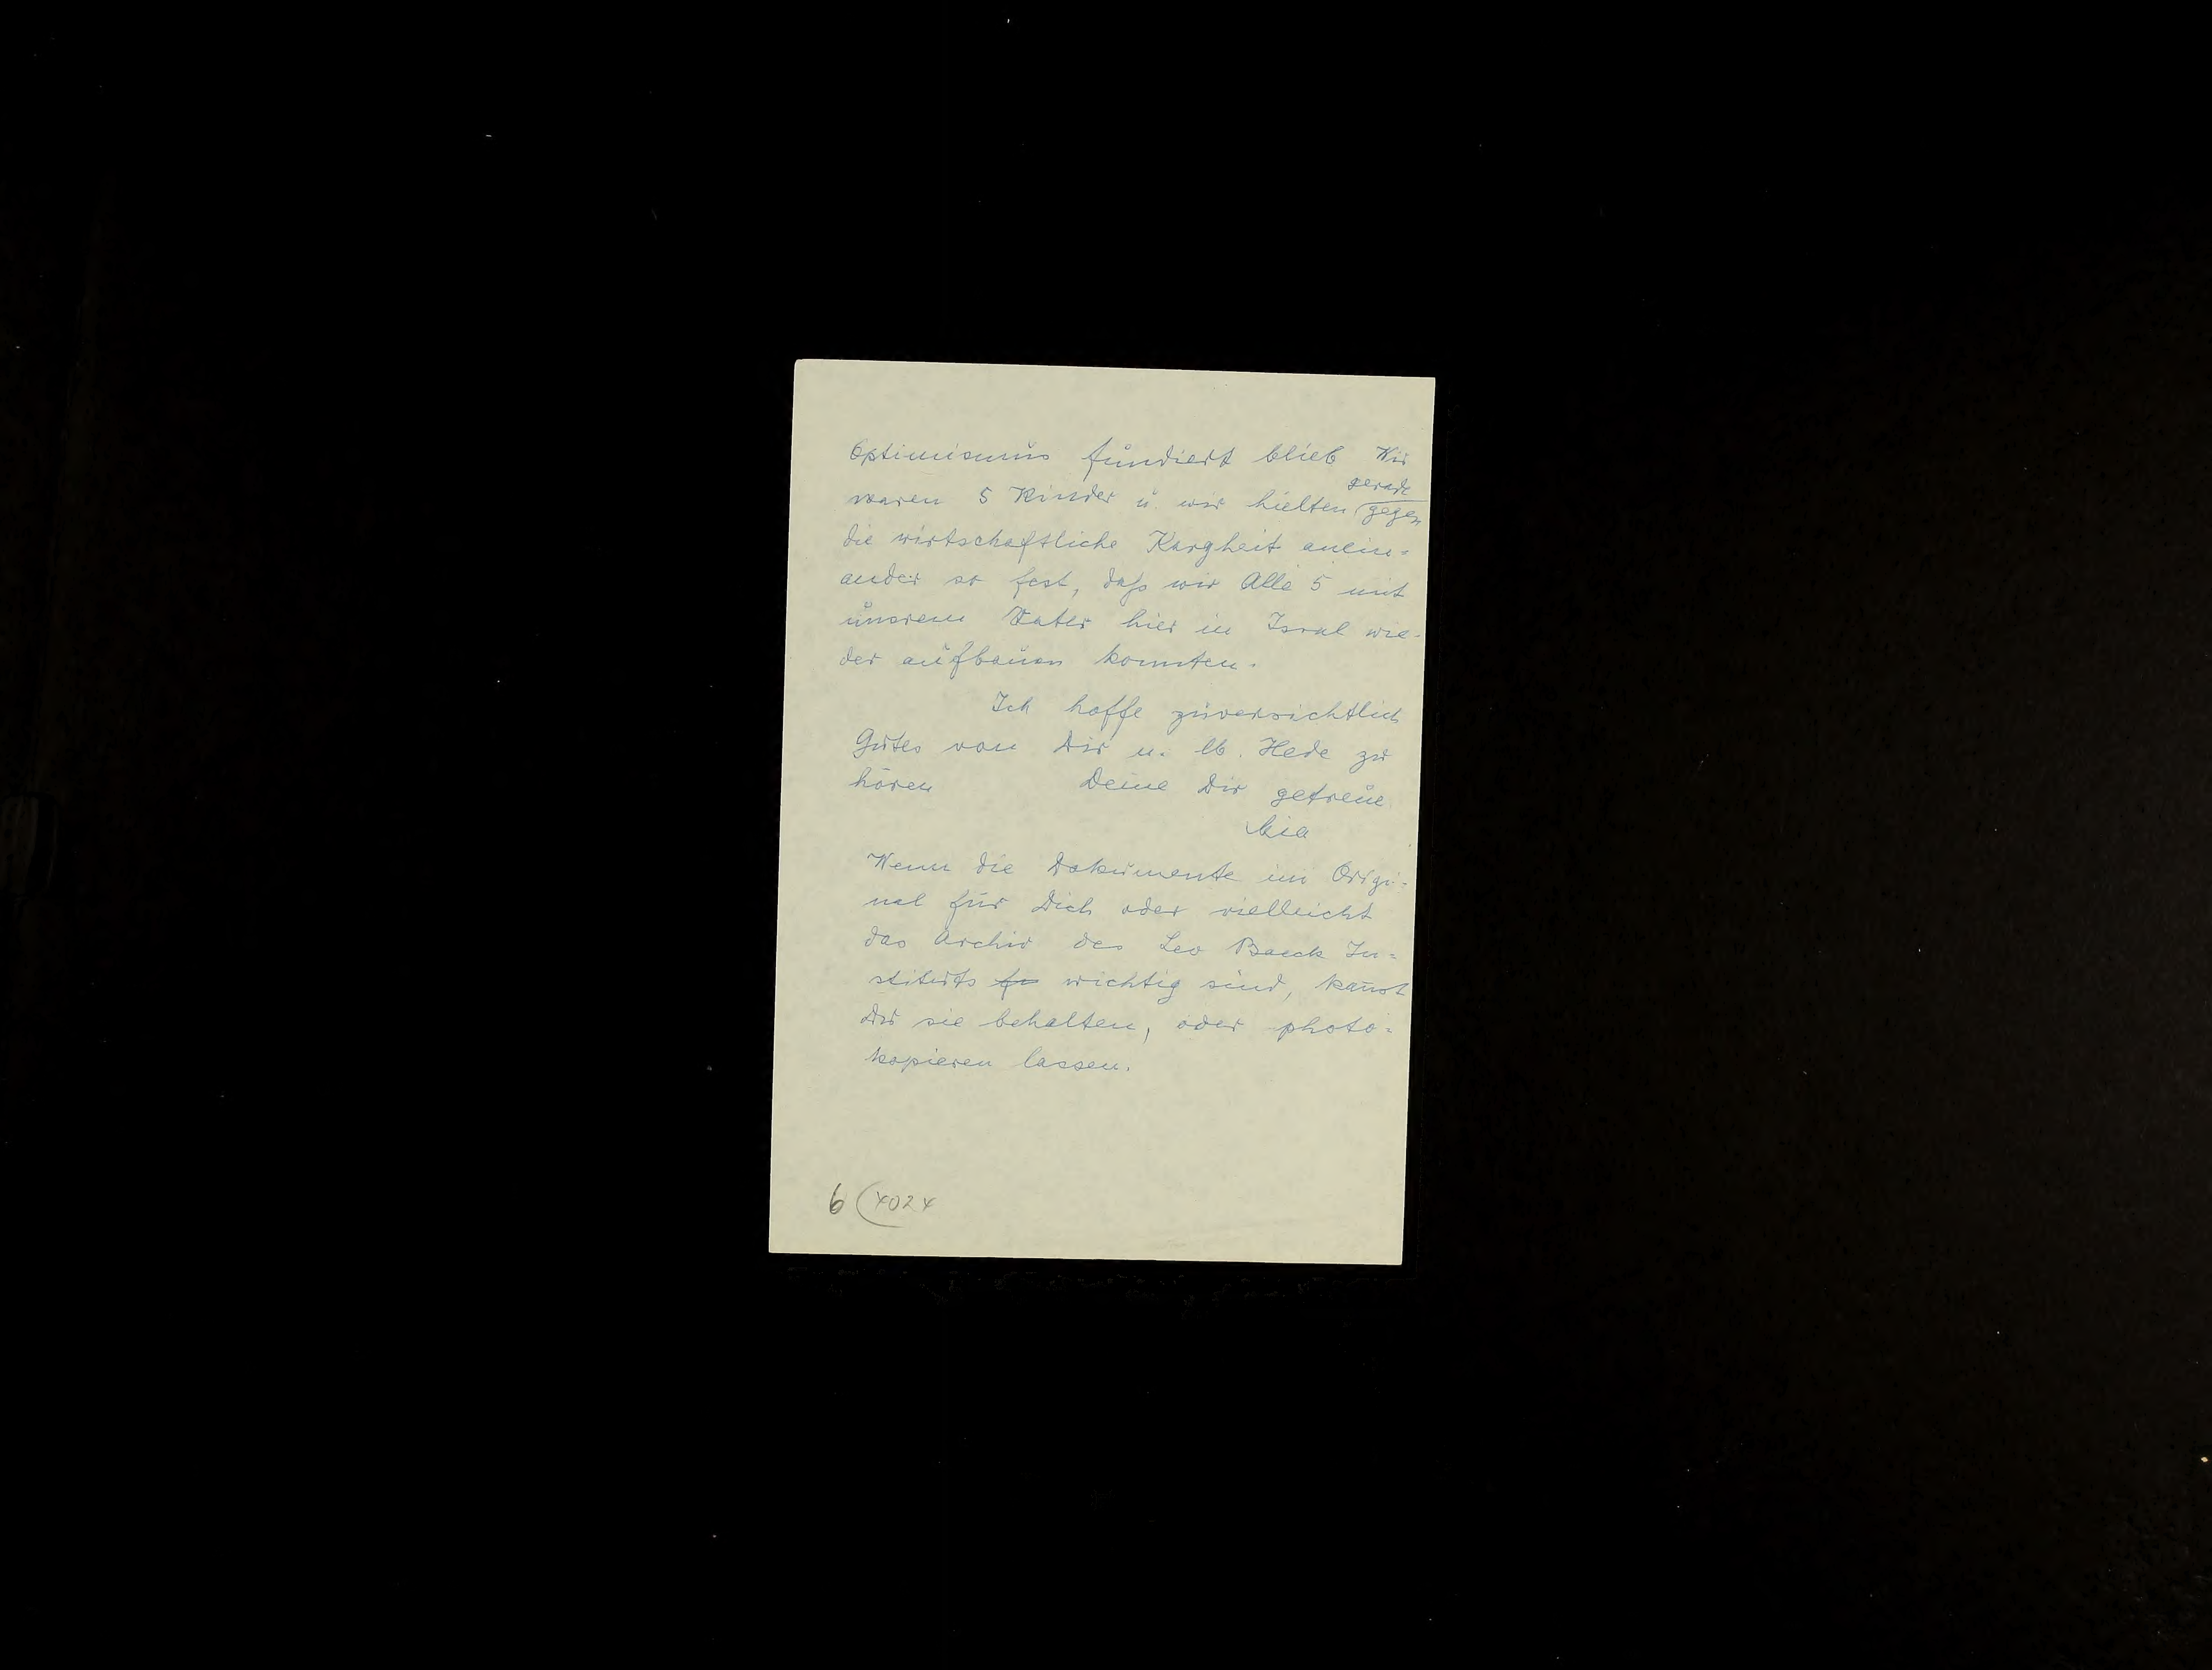 Optimismus fundiert blieb Wir
gerade
waren 5 Kinder u. wir hielten gegen
die wirtschaftliche Kargheit anein-
ander so fest, daß wir Alle 5 mit
unsrem Vater hier in Israel wie-
der aufbauen konnten.
Ich hoffe zuversichtlich
Gutes von Dir u. lb. Hede zu
hören Deine Dir getreue
Mia
Wenn die Dokumente im Origi-
nal für Dich oder vielleicht
das Archiv des Leo Baeck In-
stituts wichtig sind, kannst
Du sie behalten, oder photo-
kopieren lassen.
6 (4024